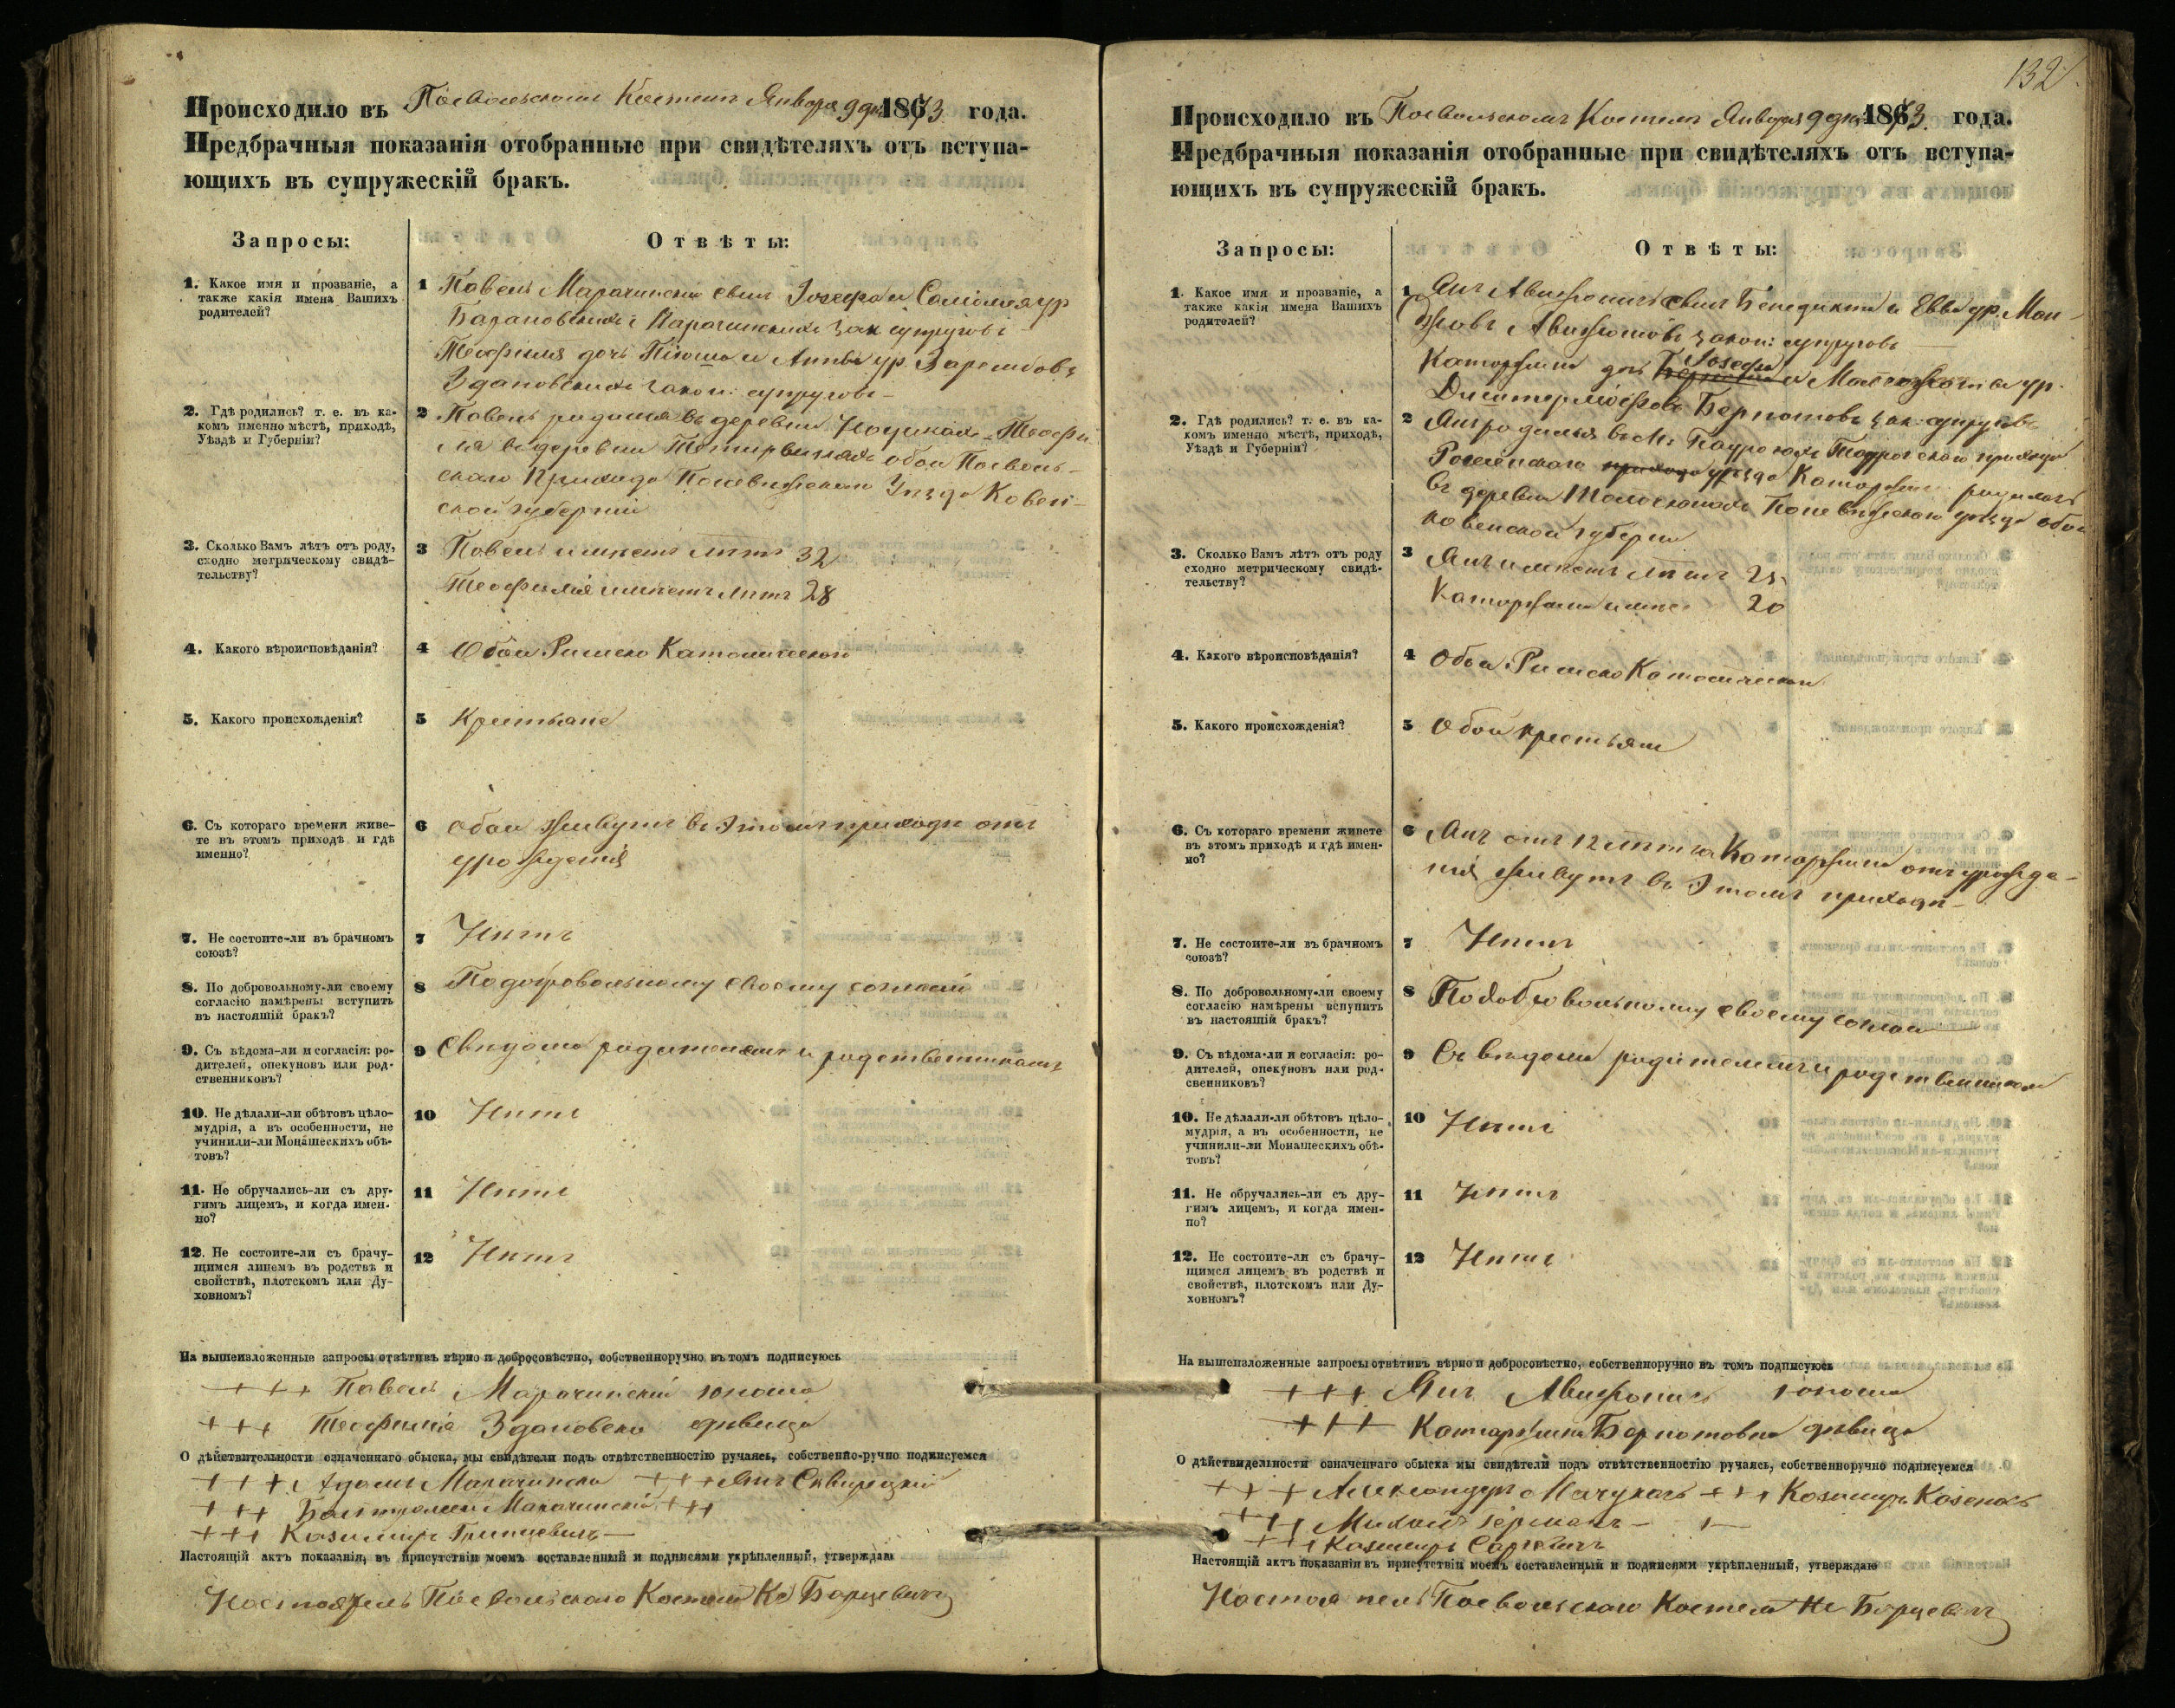 Происходило въ Посвольскомъ Костелѣ Января 9 дня 1873 года.
Предбрачныя показанія отобранные при свидѣтеляхъ отъ вступа-
ющихъ въ супружескій бракъ.
Запросы: Отвѣты:
1. Какое имя и прозваніе, а
также какія имена Вашихъ
родителей?
1 Павелъ Марачинскій сынъ Іосефа и Саломея ур
Барановскихъ Марачинскихъ зак супруговъ
Теофилія дочь и Анны ур. Зарембовъ
Здановскихъ закон: супруговъ
2. Гдѣ родились? т. е. въ ка-
комъ именно мѣстѣ, приходѣ,
Уѣздѣ и Губерніи?
2 Павелъ родился въ деревни Теофи
лія въ деревни обои Посволь-
скаго Прихода Поневѣжскаго Уѣзда Ковен-
ской губерніи
3. Сколько Вамъ лѣтъ отъ роду,
сходно метрическому свидѣ-
тельству?
3 Павелъ имѣетъ лѣтъ 32
Теофилія имѣетъ лѣтъ 28
4. Какого вѣроисповѣданія?
4 Обои Римско Католическаго
5. Какого происхожденія?
5 Крестьане
6. Съ котораго времени живе-
те въ этомъ приходѣ и гдѣ
именно?
6 Обои живутъ въ Этомъ приходѣ отъ
урожденія
7. Не состоите-ли въ брачномъ
союзѣ?
7 Нѣтъ
8. По добровольному-ли своему
согласію намѣрены вступить
въ настоящій бракъ?
8 По добровольному своему согласій
9. Съ вѣдома-ли и согласія: ро-
дителей, опекуновъ или род-
ственниковъ?
9 Свѣдома родителемъ и родственникамъ
10. Не дѣлали-ли обѣтовъ цѣло-
мудрія, а въ особенности, не
учинили-ли Монашескихъ обѣ-
товъ?
10 Нѣтъ
11. Не обручались-ли съ дру-
гимъ лицемъ, и когда имен-
но?
11 Нѣтъ
12. Не состоите-ли съ брачу-
щимся лицемъ въ родствѣ и
свойствѣ, плотскомъ или Ду-
ховномъ?
12 Нѣтъ
На вышеизложенные запросы отвѣтивъ вѣрно и добросовѣстно, собственноручно въ томъ подписуюсь
+++ Павелъ Марачинскій юноша
+++ Теофилія Здановска дѣвица
О дѣйствительности означеннаго обыска, мы свидѣтели подъ отвѣтственностію ручаясь, собственно-ручно подписуемся
+++ Адамъ Марачински +++ Янъ Сквирецкій
+++ Балтромей Марачинскій +++
+++ Казимиръ Гринцевичъ
Настоящій актъ показанія, въ присутствіи моемъ составленный и подписями укрѣпленный, утверждаю
Настоятель Посвольскаго Костела Кс Борцевичъ
132
Происходило въ Посвольскомъ Костелѣ Января 9 дня 1873 года.
Предбрачныя показанія отобранные при свидѣтеляхъ отъ вступа-
ющихъ въ супружескій бракъ.
Запросы: Отвѣты:
1. Какое имя и прозваніе, а
также какія имена Вашихъ
родителей?
1 Янъ Авижонисъ сынъ Бенедикта и Еввы ур.
Авижоновъ закон: супруговъ
Катаржина дочь Іосефа и ур.
Бернотовъ зак супруговъ
2. Гдѣ родились? т. е. въ ка-
комъ именно мѣстѣ, приходѣ,
Уѣздѣ и Губерніи?
2 Янъ родился въ М. Таурогахъ Таурогскаго прихода
Росіенскаго уѣзда Катаржина родилась
въ деревни Поневѣжскаго уѣзда обои
Ковенской губерни
3. Сколько Вамъ лѣтъ отъ роду
сходно метрическому свидѣ-
тельству?
3 Янъ имѣетъ лѣтъ 25
Катаржина имѣе 20
4. Какого вѣроисповѣданія?
4 Обои Римско Католическаи
5. Какого происхожденія?
5 Обои крестьяни
6. Съ котораго времени живете
въ этомъ приходѣ и гдѣ имен-
но?
6 Янъ отъ 12 лѣтъ а Катаржина отъ урожде-
нія живутъ въ Этомъ приходѣ
7. Не состоите-ли въ брачномъ
союзѣ?
7 Нѣтъ
8. По добровольному-ли своему
согласію намѣрены вспупить
въ настоящій бракъ?
8 По добровольному своему согласи
9. Съ вѣдома-ли и согласія: ро-
дителей, опекуновъ или род-
свенниковъ?
9 Съ вѣдома родителемъ и родственникам
10. Не дѣлали-ли обѣтовъ цѣло-
мудрія, а въ особенности, не
учинили-ли Монашескихъ обѣ-
товъ?
10 Нѣтъ
11. Не обручались-ли съ дру-
гимъ лицемъ, и когда имен-
по?
11 Нѣтъ
12. Не состоите-ли съ брачу-
щимся лицемъ въ родствѣ и
свойствѣ, плотскомъ или Ду-
ховномъ?
12 Нѣтъ
На вышеизложенные запросы отвѣтивъ вѣрно и добросовѣстно, собственноручно въ томъ подписуюсь
+++ Янъ Авижонисъ юноша
+++ Катаржина Бернотовна дѣвица
О дѣйствидельности означеннаго обыска мы свидѣтели подъ отвѣтственностію ручаясь, собственноручно подписуемся
+++ Александръ Мачукасъ +++ Казимиръ Козенасъ
+++ Михаилъ Германъ
+++ Казимиръ
Настоящій актъ показанія въ присутствіи моемъ составленный и подписями укрѣпленный, утверждаю
Настоятель Посвольскаго Костела Кс Борцевичъ